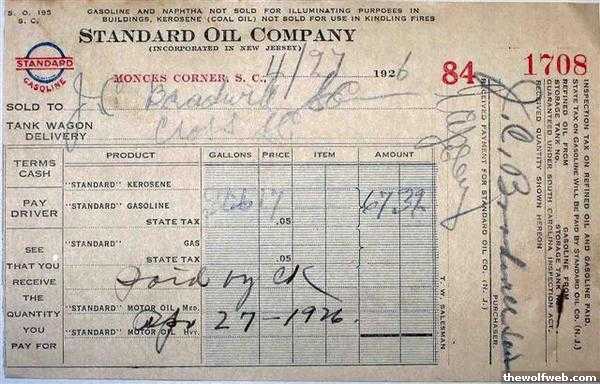 S. O. 195
S. C.
GASOLINE AND NAPHTHA NOT SOLD FOR ILLUMINATING PURPOSES IN
BUILDINGS, KEROSENE (COAL OIL) NOT SOLD FOR USE IN KINDLING FIRES
STANDARD OIL COMPANY
(INCORPORATED IN NEW JERSEY)
STANDARD
GASOLINE
MONCKS CORNER, S. C., 4/27 1926
84
1708
SOLD TO J. C.
TANK WAGON
DELIVERY Cross SC
TERMS
CASH
PAY
DRIVER
SEE
THAT YOU
RECEIVE
THE
QUANTITY
YOU
PAY FOR
PRODUCT GALLONS PRICE ITEM AMOUNT
"STANDARD" KEROSENE
"STANDARD" GASOLINE 17 67.32
STATE TAX .05
"STANDARD" GAS
STATE TAX .05
Paid by CK
"STANDARD" MOTOR OIL, MED.
Apr 27-1926.
"STANDARD" MOTOR OIL, HVY.
RECEIVED PAYMENT FOR STANDARD OIL CO. (N. J.)
T. W. SALESMAN
INSPECTION TAX ON REFINED OIL AND GASOLINE PAID.
STATE TAX ON GASOLINE WILL BE PAID BY STANDARD OIL CO. (N. J.)
REFINED OIL FROM GASOLINE FROM
STORAGE TANK No. STORAGE TANK
GUARANTEED UNDER SOUTH CAROLINA INSPECTION ACT.
RECEIVED QUANTITY SHOWN HEREON
J. C.
PURCHASER.
thewolfweb.com